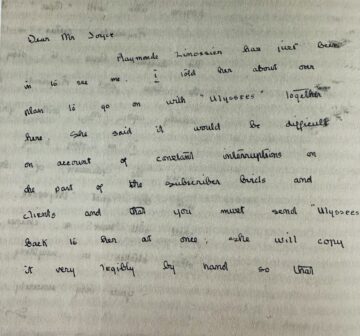 Dear Mr Joyce
Raymonde Linossier has just been
in to see me. I told her about our
plan to go on with "Ulysses" together
here She said it would be difficult
on account of constant interruptions on
the part of the subscriber birds and
clients and that you must send "Ulysses
back to her at once; she will copy
it very legibly by hand so that